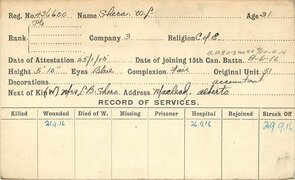 Reg. No. 436600 Name Shera. W.L. Age 31
Rank Pte Company 3 Religion C of E
Date of Attestation 25/1/15 Date of joining 15th Can. Battn. 11-6-16
Height 5' 10" Eyes Blue Complexion Fair Original Unit 51
Decorations accountant
Next of Kin (M) Mrs. L.B. Shera. Address Macleod. alberta
RECORD OF SERVICES.
Killed Wounded Died of W. Missing Prisoner Hospital Rejoined Struck Off
26.9.16 26.9.16 29.9.16